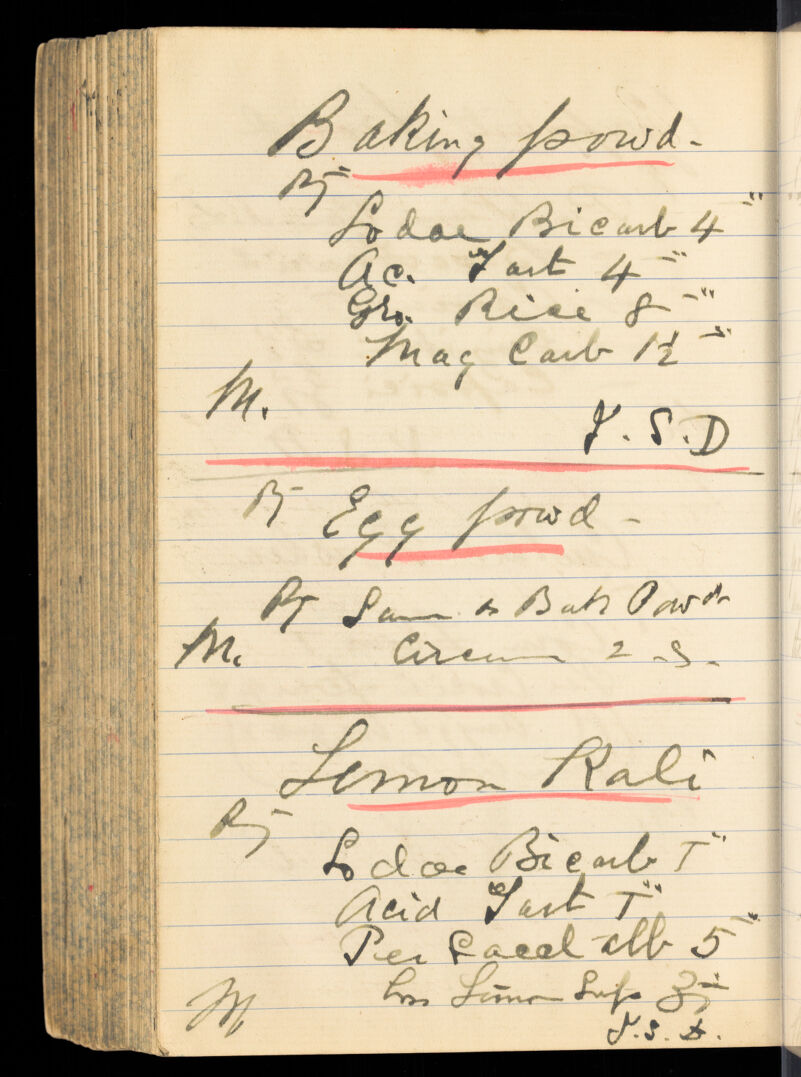 Baking powd-
Rj
Sodae Bicarb 4 "
Ac. Tart 4 "
Gro. Rice 8 "
Mag Carb 1½ "
M.
T.S.D
Rj Egg powd-
Rj Same as Bak Powdr
M. Curcum 2.S.
Lemon Kali
Rj
Sodae Bicarb T"
Acid Tart T"
Sacch alb 5 "
Lemon
M
T.S.D.